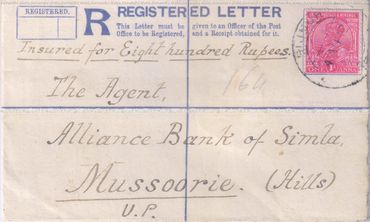 REGISTERED.
R
REGISTERED LETTER
This Letter must be given to an Officer of the Post
Office to be Registered, and a Receipt obtained for it.
Insured for Eight hundred Rupees.
164
The Agent,
Alliance Bank of Simla,
Mussoorie. (Hills)
U.P.